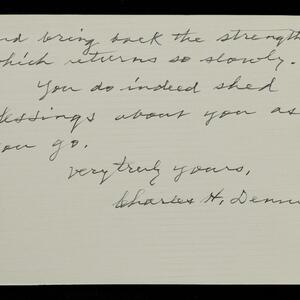 nd bring back the strength
which returns so slowly.
You do indeed shed
lessings about you as
you go.
Very truly yours,
Charles H. Denni